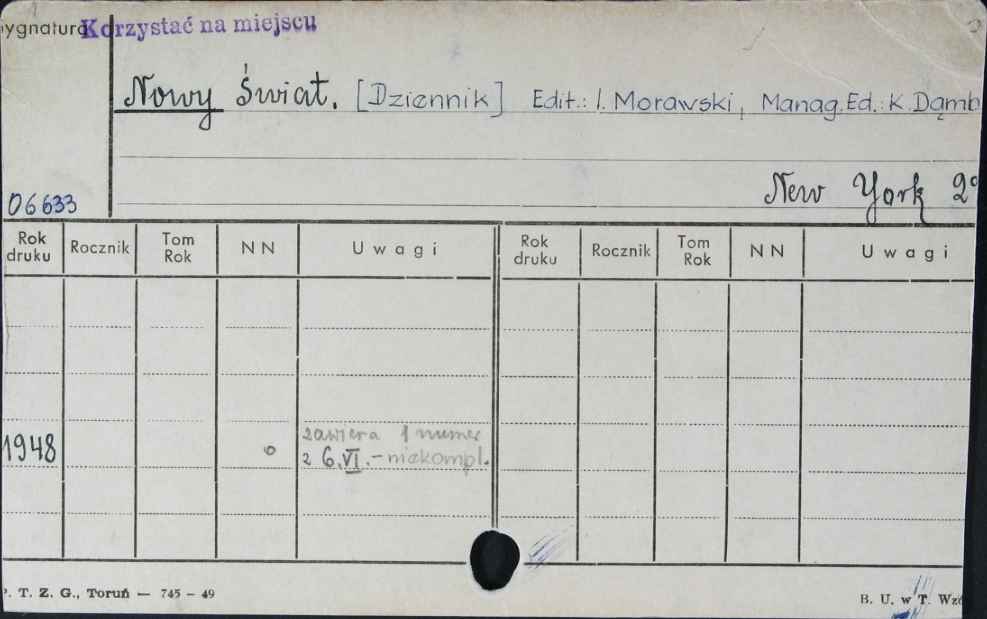 Sygnatura Korzystać na miejscu
Nowy Świat. [Dziennik] Edit.: I. Morawski, Manag. Ed.: K. Dąmb
New York 2°
06633
Rok druku Rocznik Tom Rok NN Uwagi Rok druku Rocznik Tom Rok NN Uwagi
1948 o zawiera 1 numer
z 6.VI. - niekompl.
P. T. Z. G., Toruń — 745 - 49
B. U. w T. Wzó